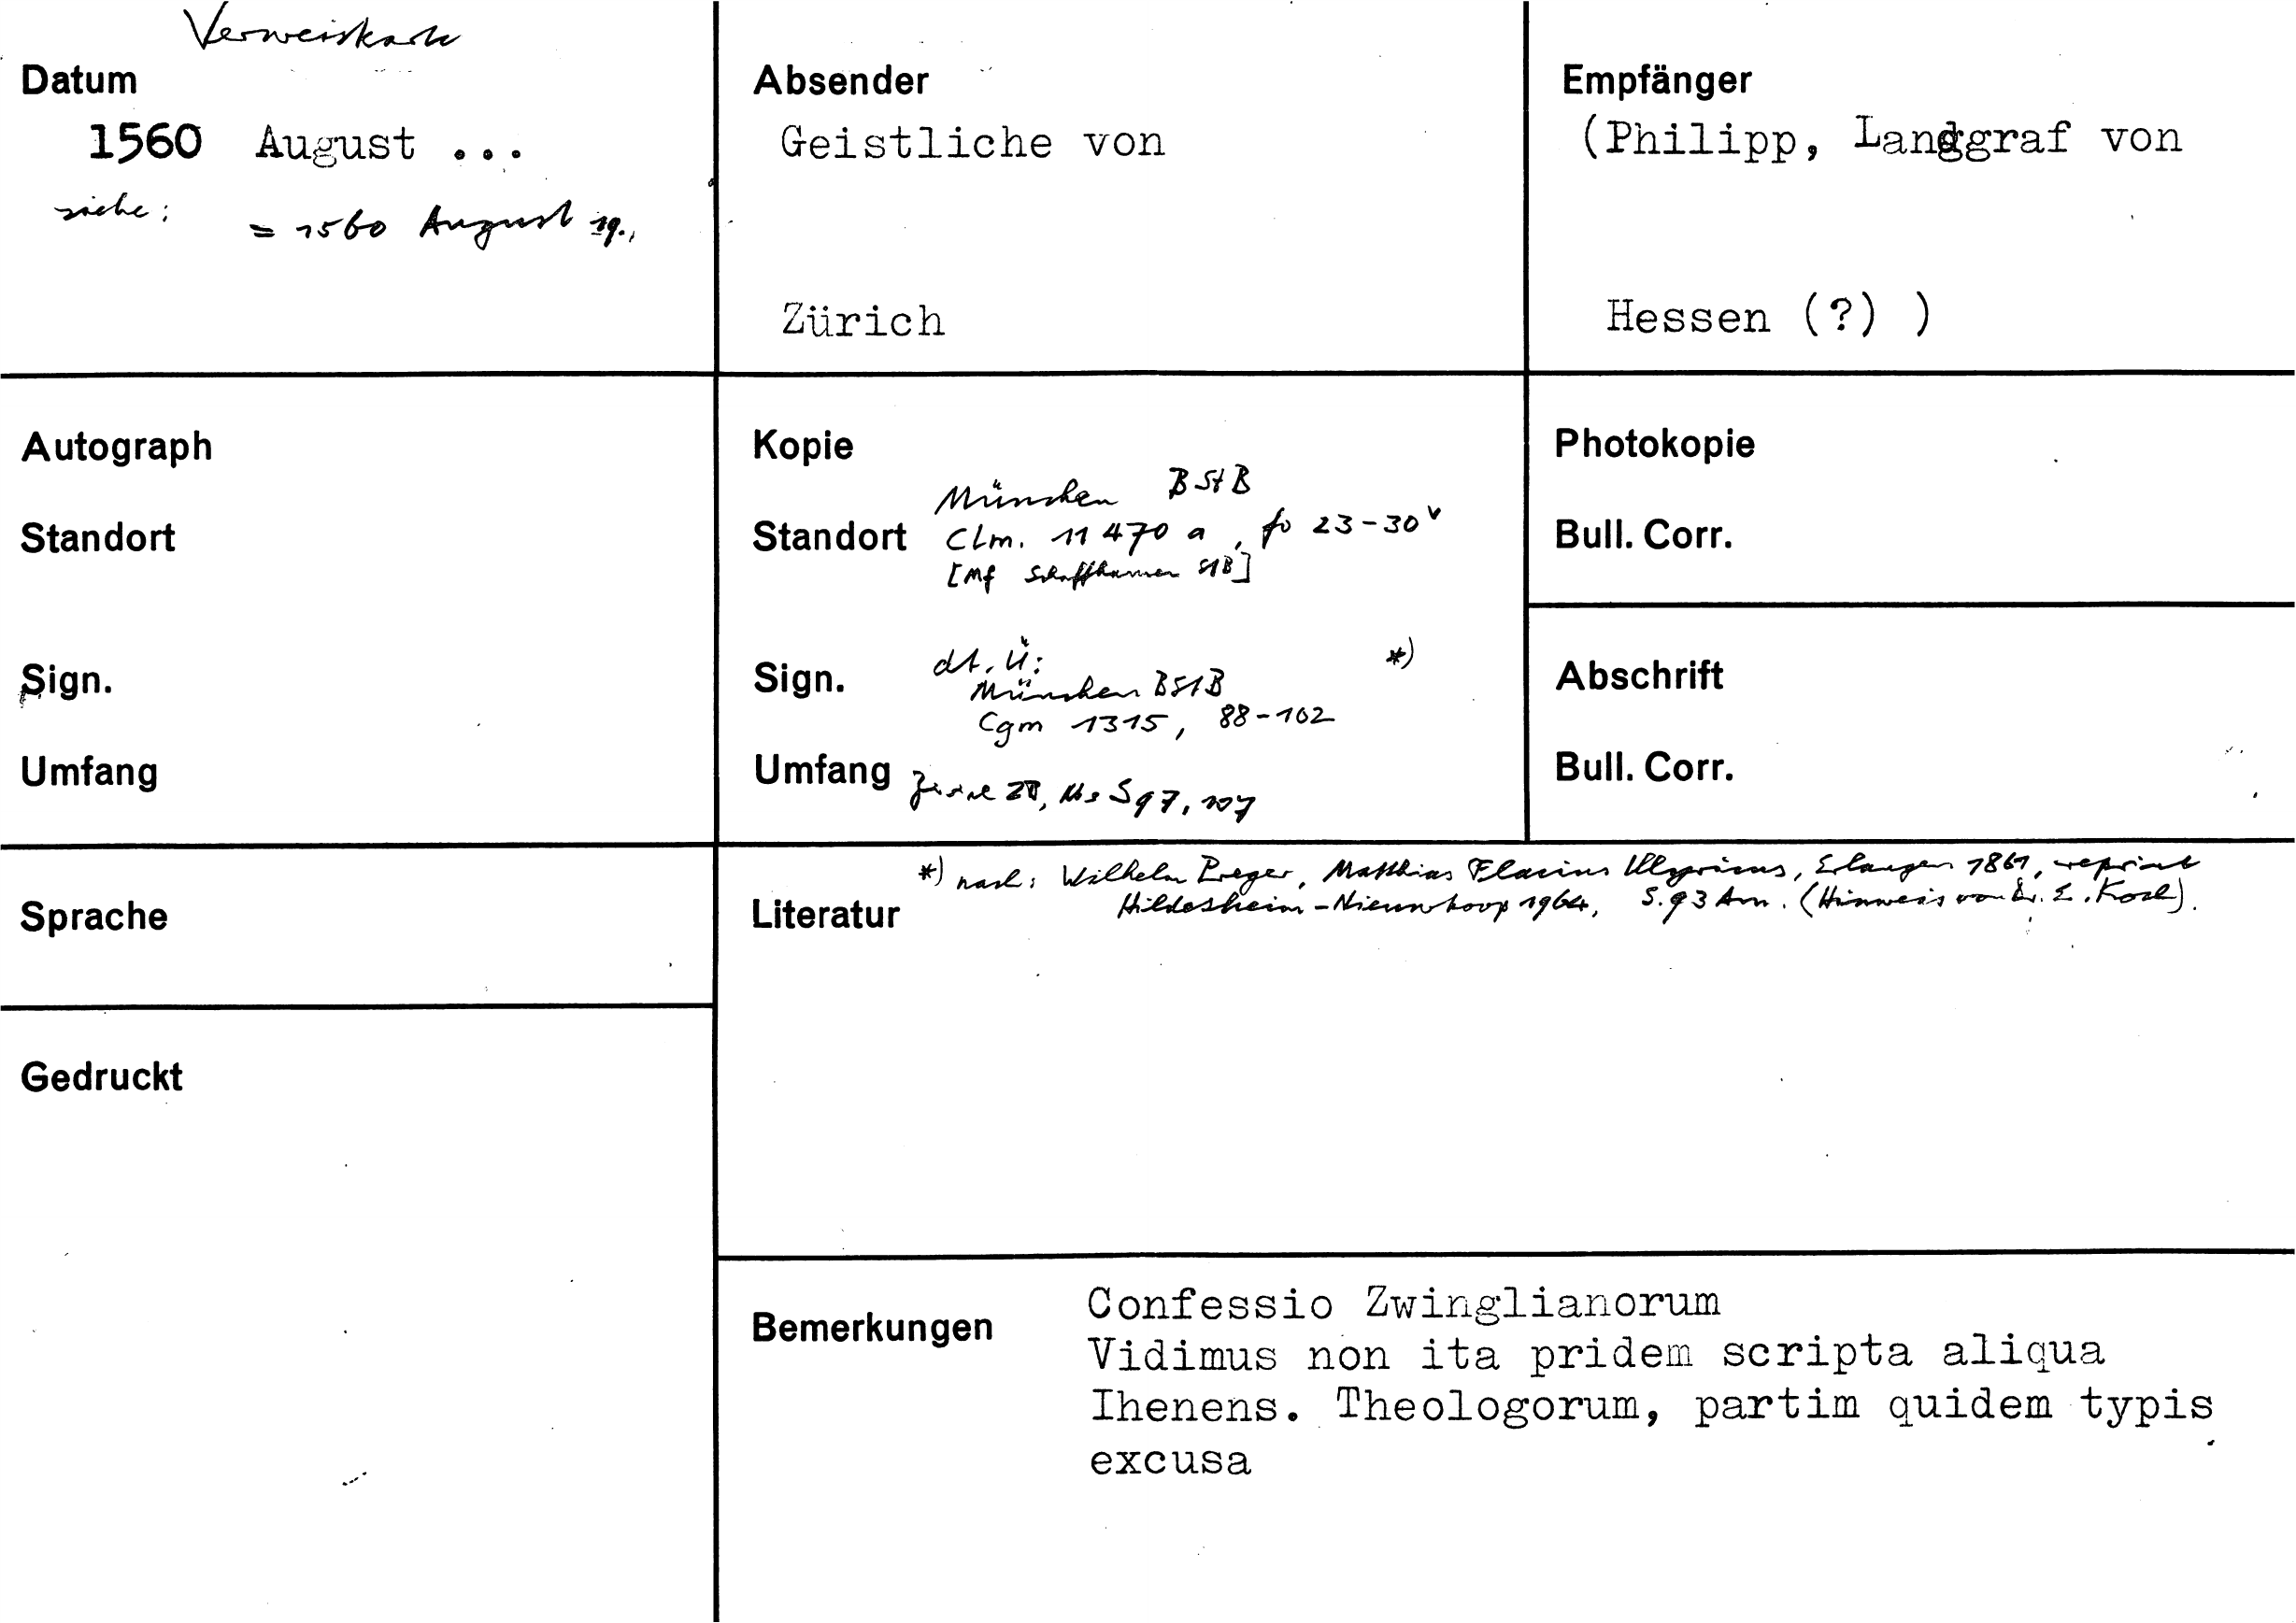 Verweiskarte
Datum
1560 August ...
siehe:
= 1560 August 19.,
Absender
Geistliche von
Zürich
Empfänger
(Philipp, Landgraf von
Hessen (?) )
Autograph
Standort
Sign.
Umfang
Kopie
München BStB
Standort Clm. 11 470 a, fo 23-30v
[Mf Schaffhausen StB]
dt. Ü: *)
Sign. München BStB
Cgm 1315, 88-102
Umfang Zürich ZB, Ms S 97, 107
Photokopie
Bull. Corr.
Abschrift
Bull. Corr.
Sprache
Gedruckt
*) nach: Wilhelm Preger, Matthias Flacius Illyricus, Erlangen 1861, reprint
Literatur Hildesheim-Nieuwkoop 1964, S. 93 Anm. (Hinweis von Dr. E. Koch).
Bemerkungen
Confessio Zwinglianorum
Vidimus non ita pridem scripta aliqua
Ihenens. Theologorum, partim quidem typis
excusa